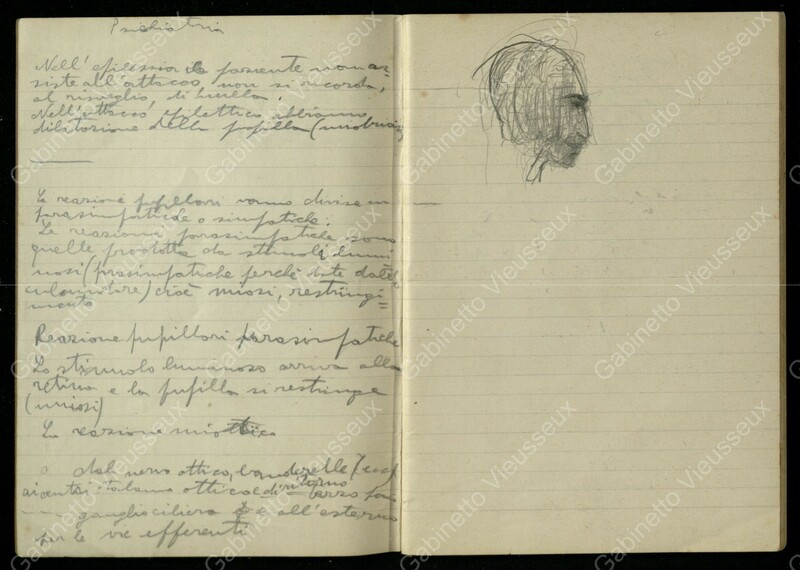 Psichiatria
Nell'epilessia il paziente non as=
siste all'attacco, non si ricorda,
al risveglio, di nulla.
Nell'attacco epilettico abbiamo
dilatazione della pupilla (midriasi)
Le reazioni pupillari vanno divise in
parasimpatiche o simpatiche.
Le reazioni parasimpatiche sono
quelle prodotte da stimoli lumi
nosi (parasimpatiche perchè date dall'
culomotore) cioè miosi, restringi=
mento
Reazione pupillari parasimpatiche
Lo stimolo luminoso arriva alla
retina e la pupilla si restringe
(miosi)
La reazione miotica
dal nervo ottico, banderelle
talamo ottico e di ritorno verso
ganglio ciliare e all'esterno
per le vie efferenti
Gabinetto Vieusseux